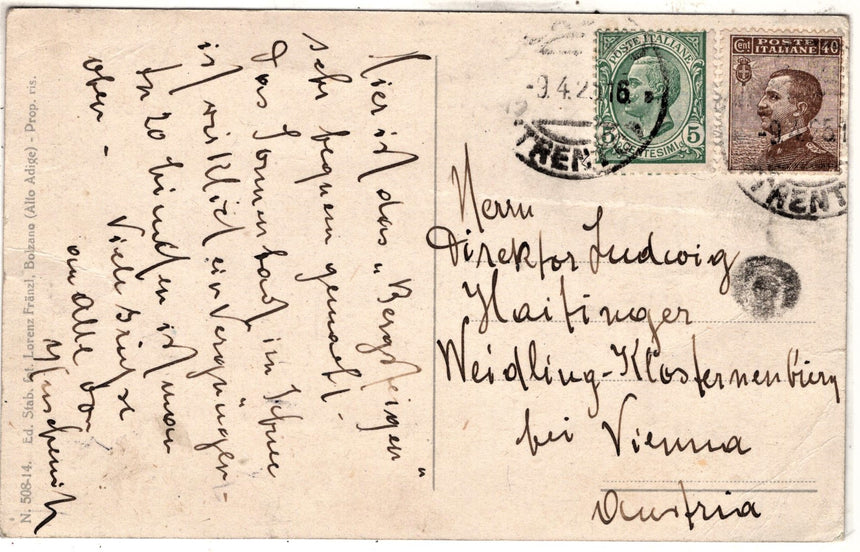 Hier ist das „Bergsteigen“
sehr bequem gemacht.
Das Sonnenbad im Schnee
ist wirklich ein Vergnügen –
In 20 Minuten ist man
oben –
Viele Grüsse
an Alle von
N. 508-14. Ed. Stab. fot. Lorenz Fränzl, Bolzano (Alto Adige) - Prop. ris.
POSTE ITALIANE
5 CENTESIMI 5
Cent POSTE ITALIANE 40
-9.4.25 16
TRENT
TRENT
Herrn
Direktor Ludwig
Haitinger
Weidling-Klosternenburg
bei Vienna
Austria